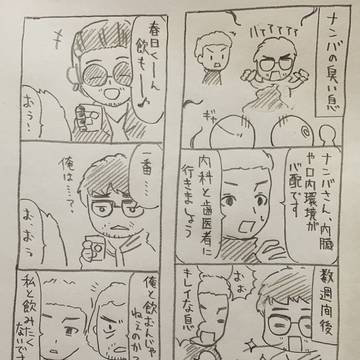 ナンバの臭い息
バテテテテ
ギャ
ナンバさん、内臓
や口内環境が
心配です
内科と歯医者に
行きましょう
数週間後
おお
キレイな息
春日くーん
飲もー♪
おぅ…
一番…
俺は…?
お、おぅ
俺と飲むんじゃ
ねぇのか?
私と飲みたく
ないです